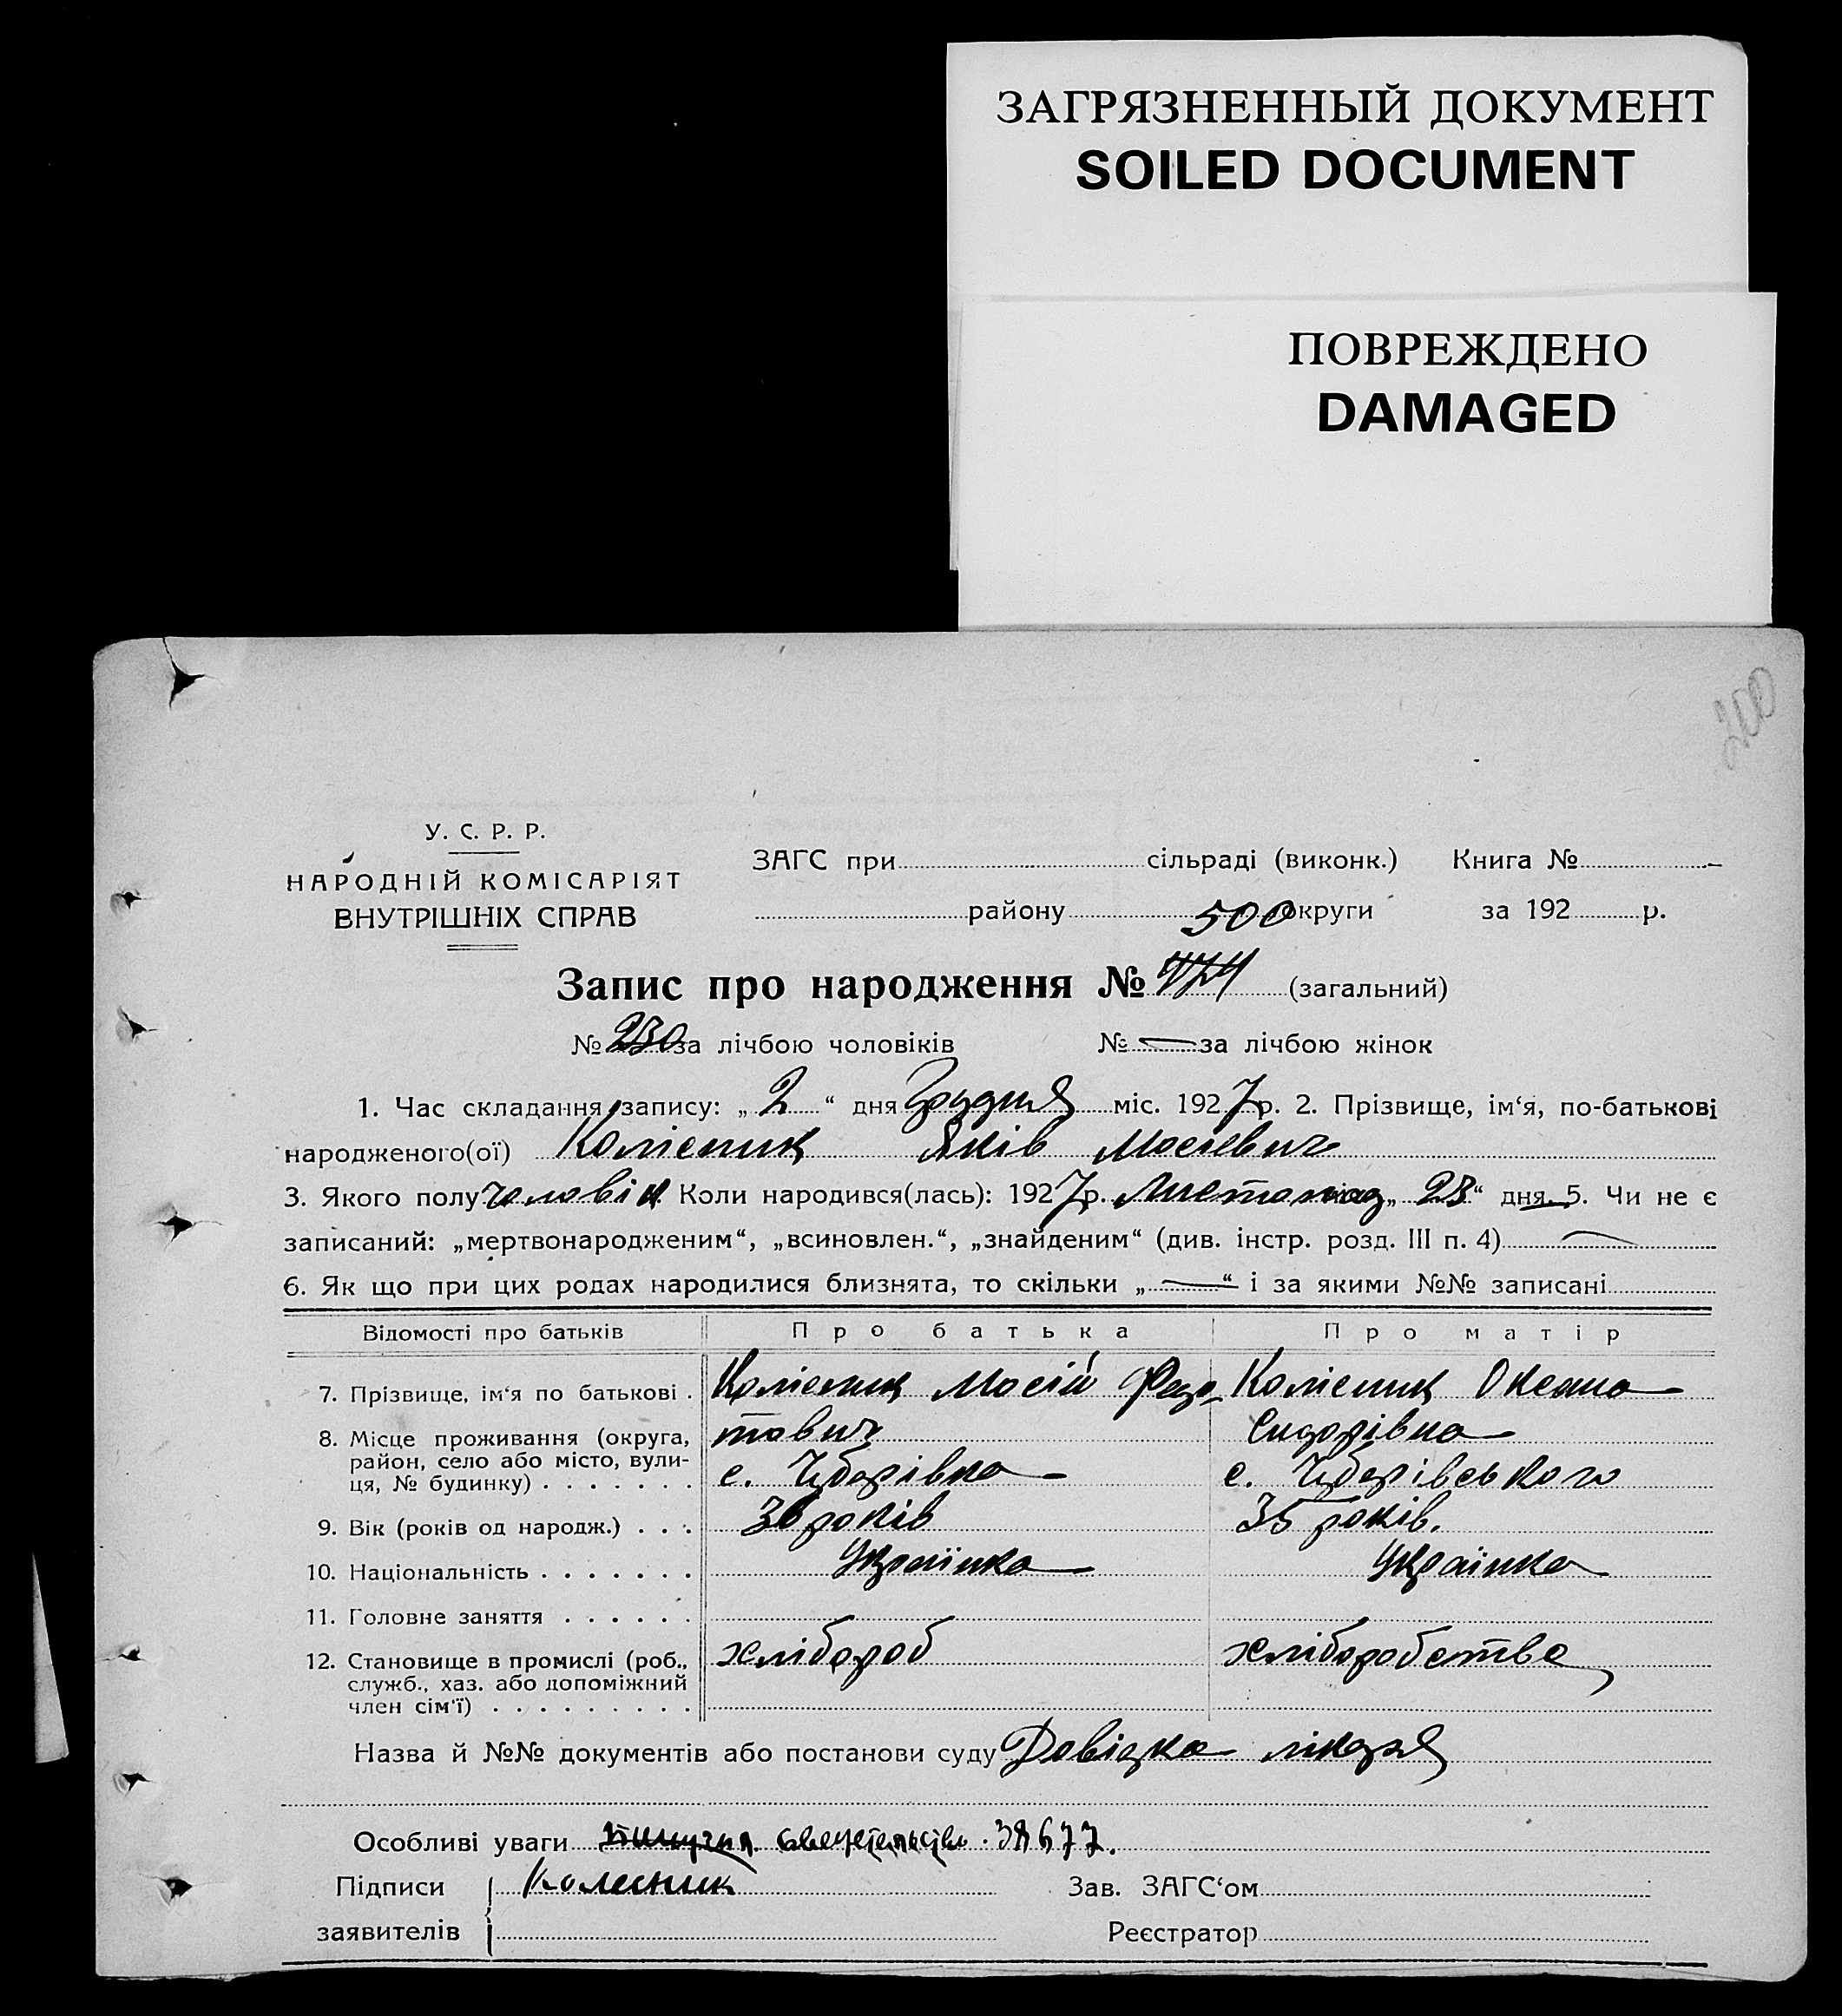 ЗАГРЯЗНЕННЫЙ ДОКУМЕНТ
SOILED DOCUMENT
ПОВРЕЖДЕНО
DAMAGED
200
У. С. Р. Р.
НАРОДНІЙ КОМІСАРІЯТ
ВНУТРІШНІХ СПРАВ
ЗАГС при сільраді (виконк.) Книга №
району округи за 192 р.
500
Запис про народження № 474 (загальний)
№ 230 за лічбою чоловіків № — за лічбою жінок
1. Час складання запису: „2“ дня Грудня міс. 1927 р. 2. Прізвище, ім‘я, по-батькові
народженого(ої) Колісник Яків Мосієвич
3. Якого полу чоловік Коли народився(лась): 1927 р. Листопад „28“ дня. 5. Чи не є
записаний: „мертвонародженим“, „всиновлен.“, „знайденим“ (див. інстр. розд. III п. 4) —
6. Як що при цих родах народилися близнята, то скільки „—“ і за якими №№ записані
Відомості про батьків Про батька Про матір
7. Прізвище, ім‘я по батькові . Колісник Мосій Федо- Колісник Оксана
8. Місце проживання (округа, тович Сидорівна
район, село або місто, вули-
ця, № будинку) . . . . . . . с. с.
9. Вік (років од народж.) . . . 36 років 35 років.
10. Національність . . . . . . . Українка Українка
11. Головне заняття . . . . . .
12. Становище в промислі (роб., хлібороб хліборобство
служб., хаз. або допоміжний
член сім‘ї) . . . . . . . . .
Назва й №№ документів або постанови суду Довідка лікаря
Особливі уваги свидетельство. 38677.
Підписи Колесник Зав. ЗАГС‘ом
заявителів Реєстратор